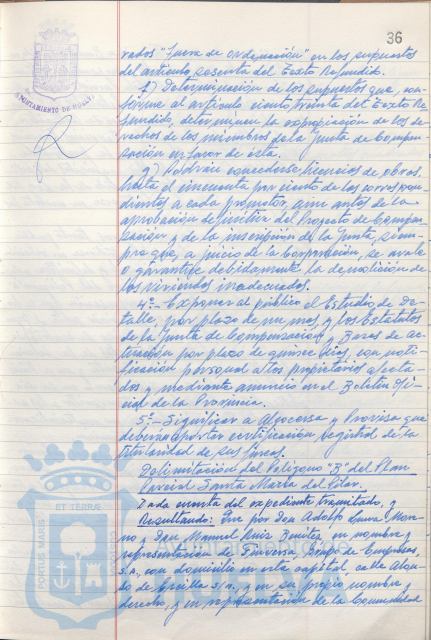 36
AYUNTAMIENTO DE HUELVA
rados "fuera de ordenación" en los supuestos
del artículo sesenta del Texto Refundido.
f) Determinación de los supuestos que, con-
forme al artículo ciento treinta del Texto Re-
fundido, determinen la expropiación de los de-
rechos de los miembros de la Junta de Compen-
sación en favor de ésta.
g) Podrán concederse licencias de obras,
hasta el cincuenta por ciento de las correspon-
dientes a cada promotor, aun antes de la
aprobación definitiva del Proyecto de Compen-
sación y de la inscripción de la Junta, siem-
pre que, a juicio de la Corporación, se avale
o garantice debidamente la demolición de
las viviendas inadecuadas.
4º.- Exponer al público el Estudio de De-
talle, por plazo de un mes, y los Estatutos
de la Junta de Compensación y Bases de Ac-
tuación por plazo de quince días, con noti-
ficación personal a los propietarios afecta-
dos y mediante anuncio en el Boletín Ofi-
cial de la Provincia.
5º.- Significar a Algocersa y Provisa que
deberán aportar certificación registral de la
titularidad de sus fincas.
Delimitación del Polígono "B" del Plan
Parcial Santa Marta del Pilar.
Dada cuenta del expediente tramitado, y
Resultando: Que por Don Adolfo More-
no y Don Manuel Ruiz Benítez, en nombre y
representación de Grupo de Empresas,
S.A., con domicilio en esta capital calle Alon-
so de Ercilla s/n., y en su propio nombre y
derecho, y en representación de la Comunidad
PORTUS MARIS ET TERRAE